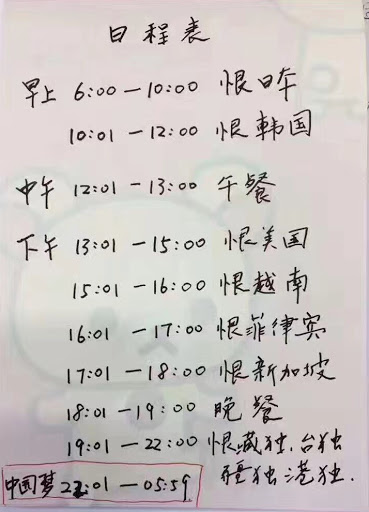 日程表
早上 6:00—10:00 恨日本
10:01—12:00 恨韩国
中午 12:01—13:00 午餐
下午 13:01—15:00 恨美国
15:01—16:00 恨越南
16:01—17:00 恨菲律宾
17:01—18:00 恨新加坡
18:01—19:00 晚餐
19:01—22:00 恨藏独.台独
疆独港独.
中国梦 22:01—05:59